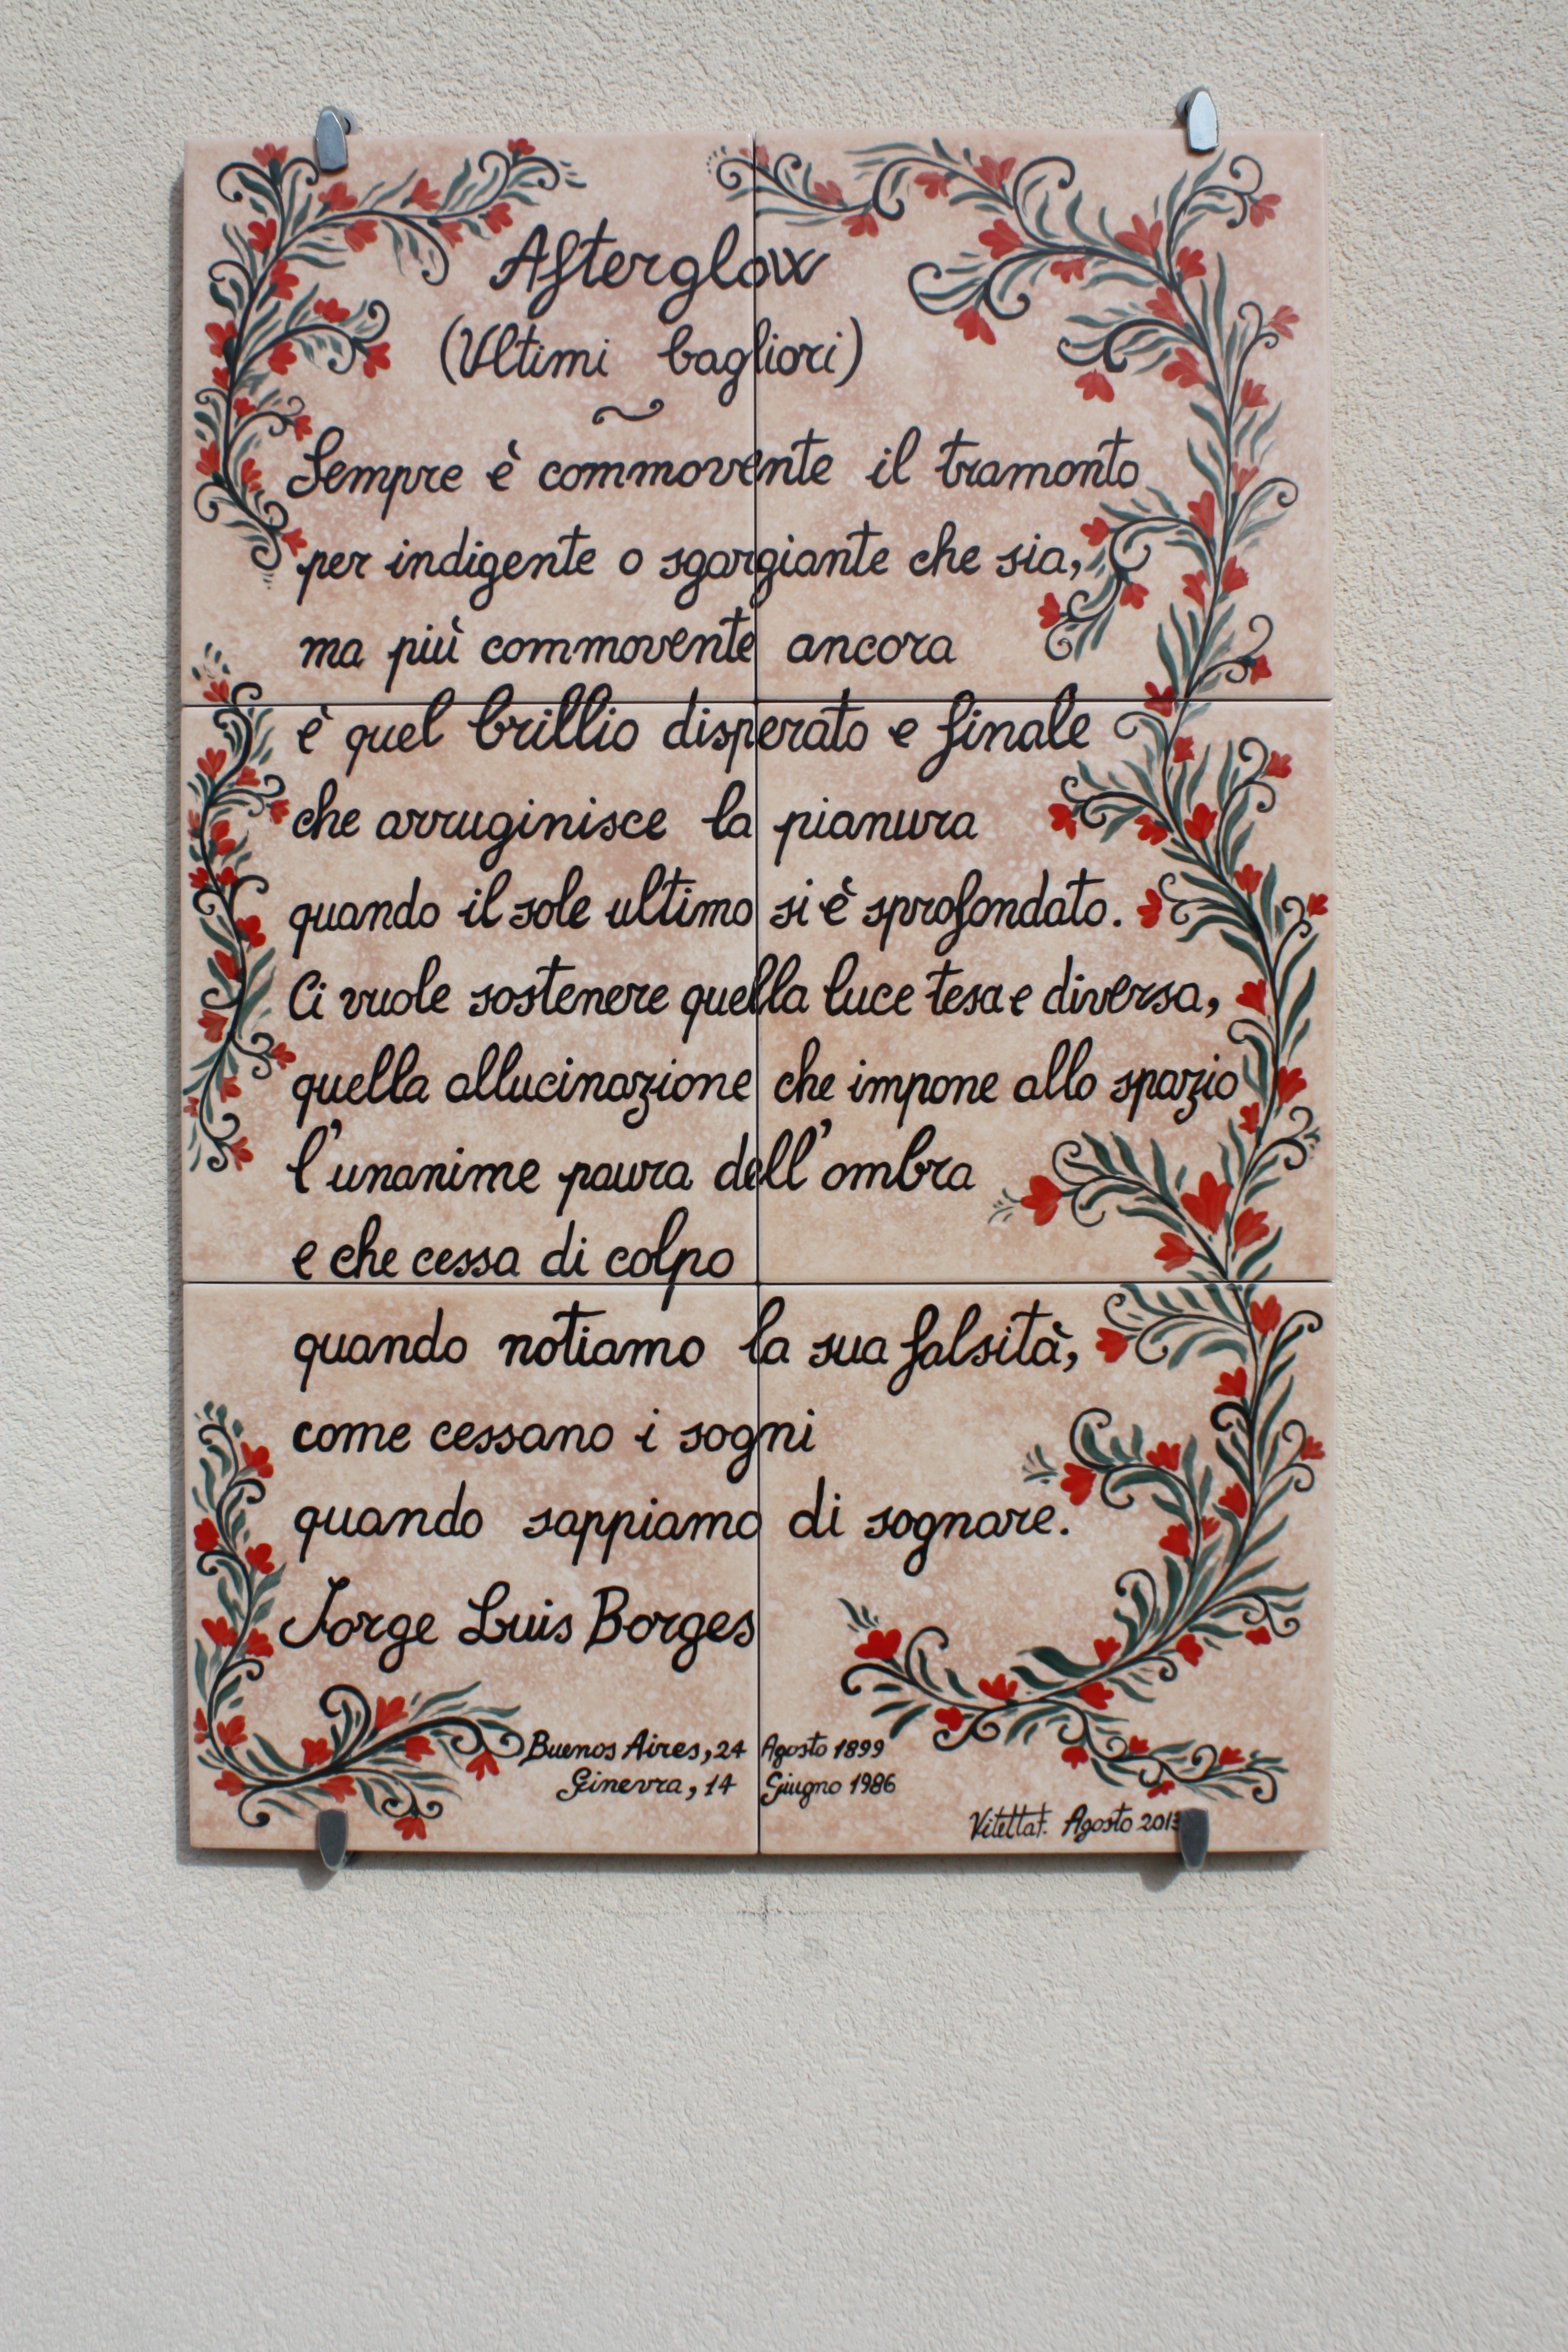 Afterglow
(Ultimi bagliori)
Sempre è commovente il tramonto
per indigente o sgargiante che sia,
ma più commovente ancora
è quel brillio disperato e finale
che arruginisce la pianura
quando il sole ultimo si è sprofondato.
Ci vuole sostenere quella luce tesa e diversa,
quella allucinazione che impone allo spazio
l'unanime paura dell'ombra
e che cessa di colpo
quando notiamo la sua falsità,
come cessano i sogni
quando sappiamo di sognare.
Jorge Luis Borges
Buenos Aires, 24 Agosto 1899
Ginevra, 14 Giugno 1986
Agosto